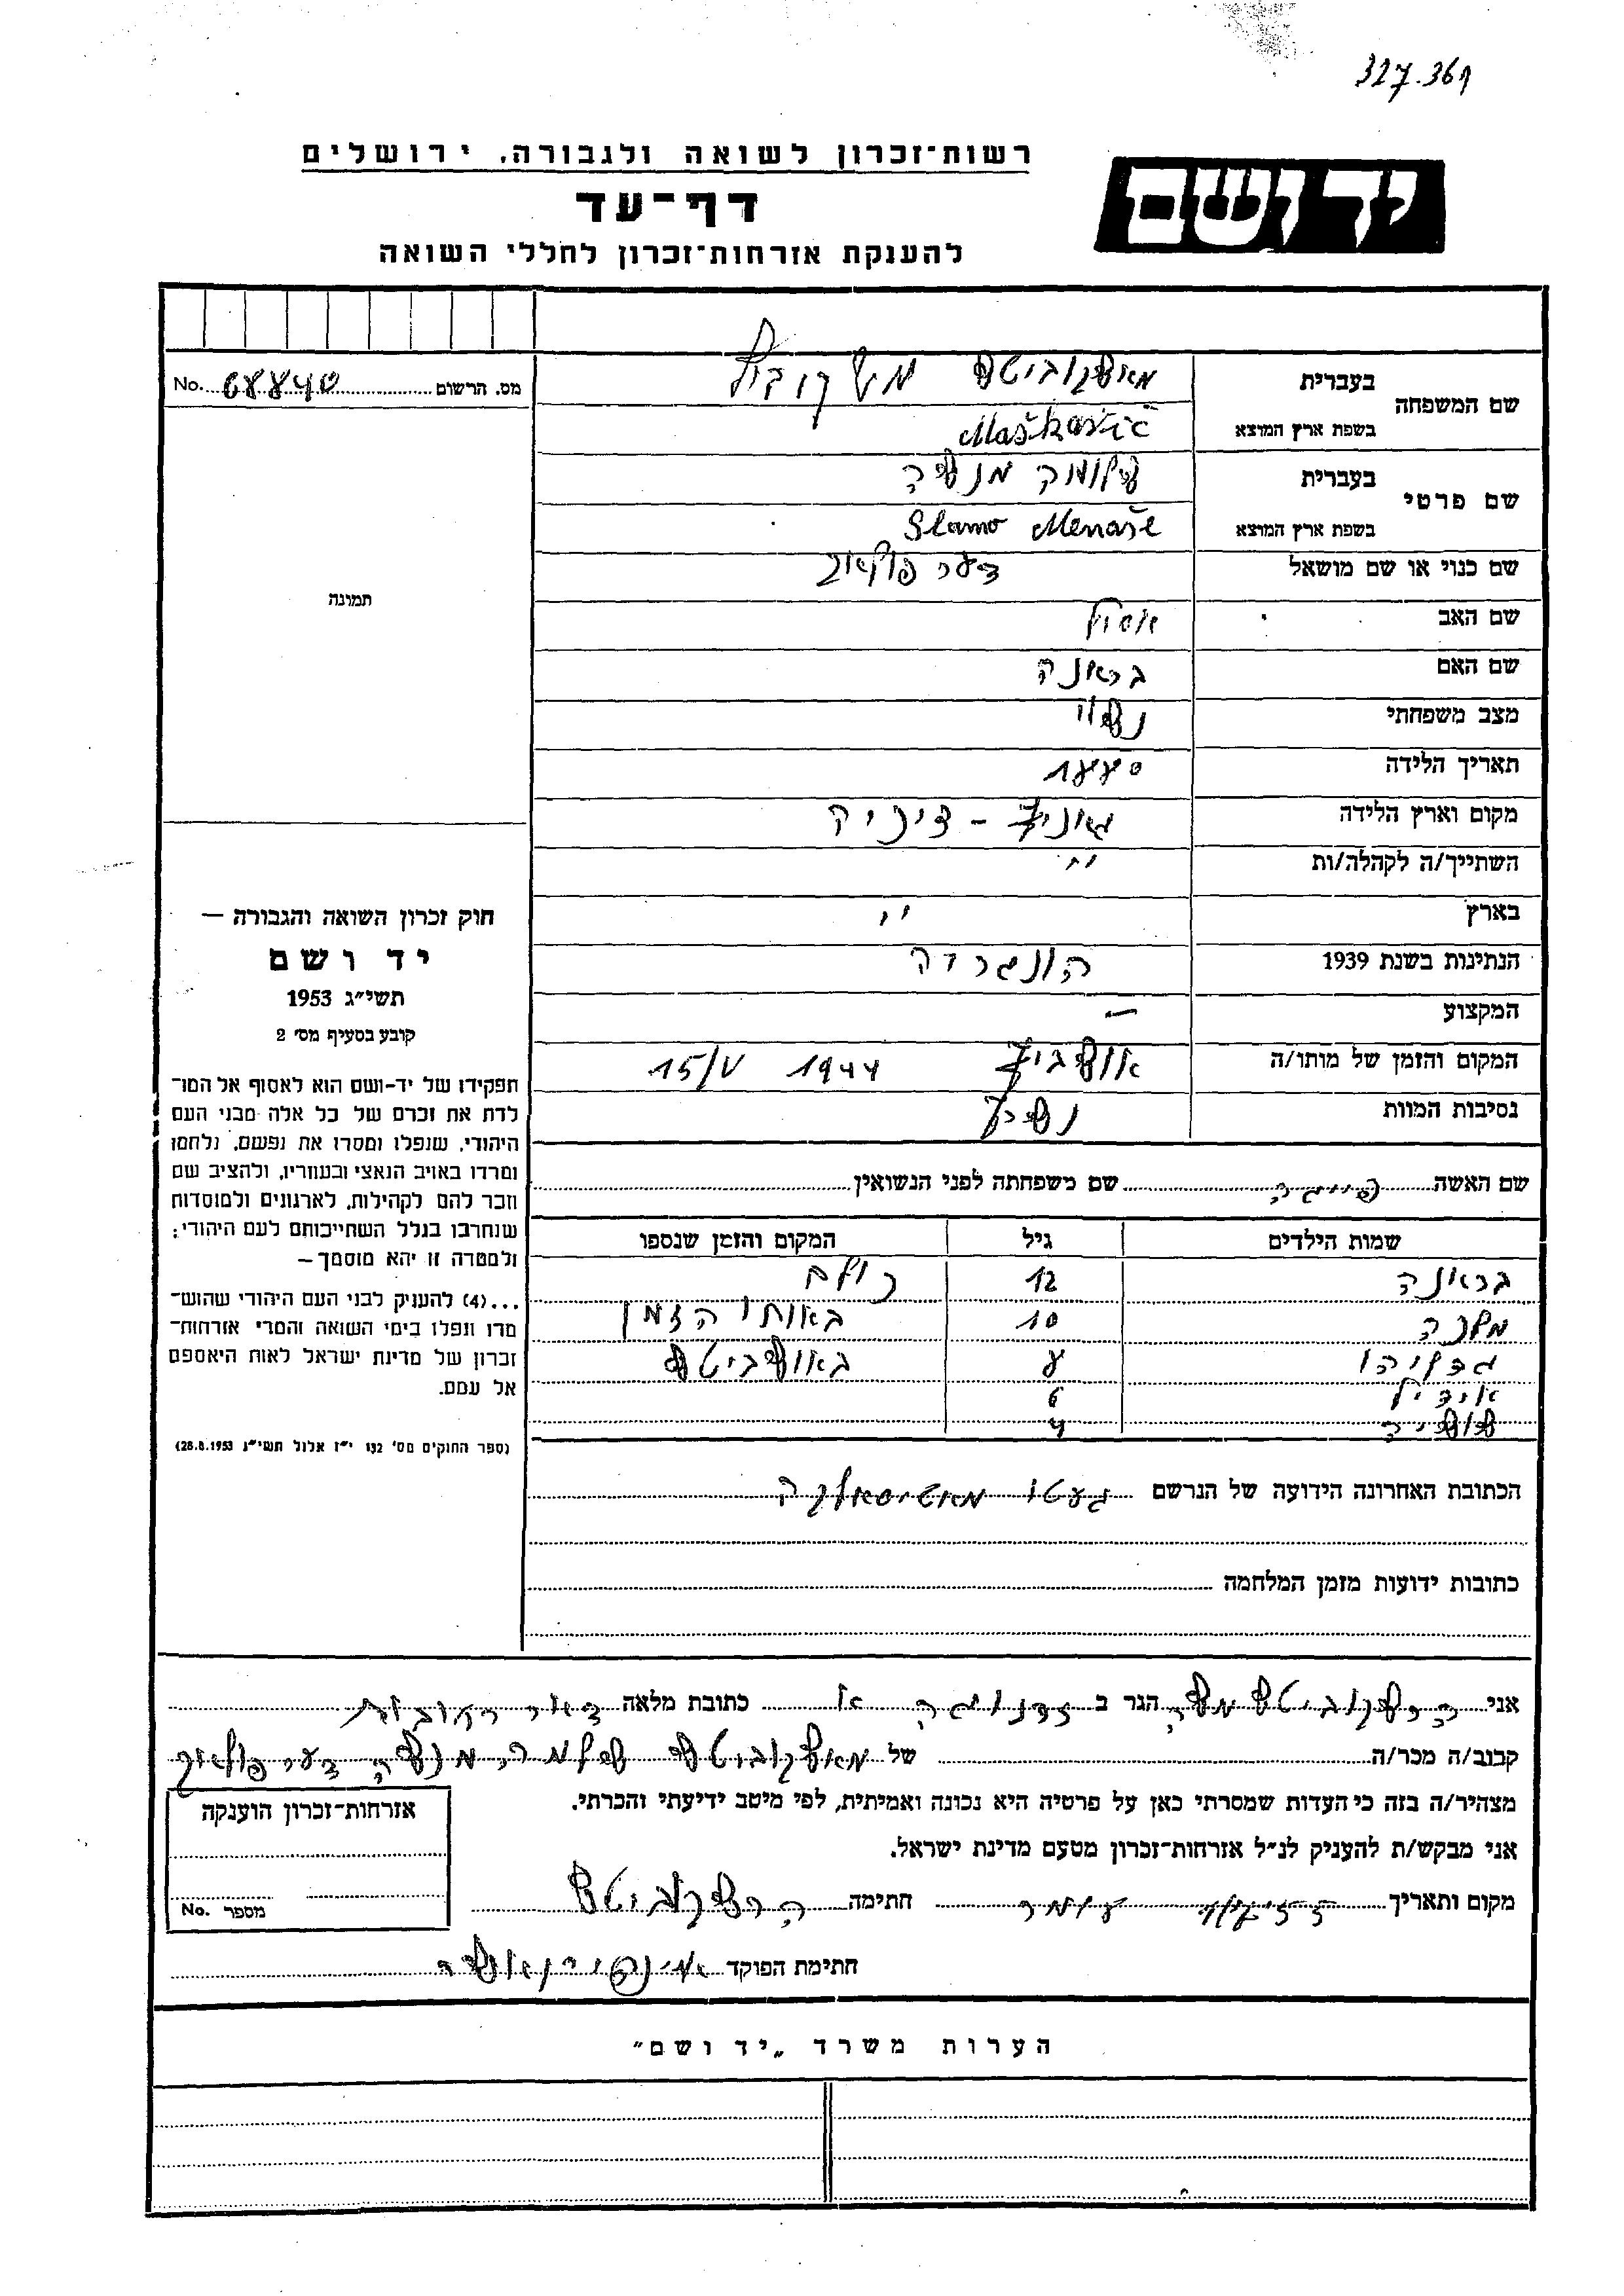 327.361
רשות־זכרון לשואה ולגבורה, ירושלים
יד ושם
דף־עד
להענקת אזרחות־זכרון לחללי השואה
שם המשפחה
בעברית מאשקוביטש משקוביץ
בשפת ארץ המוצא Maškovič
שם פרטי
בעברית שלומה מנשה
בשפת ארץ המוצא Slamo Menaše
שם כנוי או שם מושאל
שם האב
שם האם בראנה
מצב משפחתי נשוי
תאריך הלידה 1880
מקום וארץ הלידה
השתייך/ה לקהלה/ות ״
בארץ ״
הנתינות בשנת 1939
המקצוע —
המקום והזמן של מותו/ה אושביץ 1944 15/V
נסיבות המוות נשרף
No. 68840 מס. הרשום
תמונה
חוק זכרון השואה והגבורה —
יד ושם
תשי״ג 1953
קובע בסעיף מס׳ 2
תפקידו של יד־ושם הוא לאסוף אל המו־
לדת את זכרם של כל אלה מבני העם
היהודי, שנפלו ומסרו את נפשם, נלחמו
ומרדו באויב הנאצי ובעוזריו, ולהציב שם
וזכר להם לקהילות, לארגונים ולמוסדות
שנחרבו בגלל השתייכותם לעם היהודי;
ולמטרה זו יהא מוסמך —
...(4) להעניק לבני העם היהודי שהוש־
מדו ונפלו בימי השואה והמרי אזרחות־
זכרון של מדינת ישראל לאות היאספם
אל עמם.
(ספר החוקים מס׳ 132 י״ז אלול תשי״ג 28.8.1953)
שם האשה שם משפחתה לפני הנשואין
שמות הילדים גיל המקום והזמן שנספו
בראנה 12 כולם
מלכה 10 באותו הזמן
גדליהו 8 באושביטש
אידיל 6
4
הכתובת האחרונה הידועה של הנרשם געטו
כתובות ידועות מזמן המלחמה
אני הרשקוביטש משה הגר ב כתובת מלאה דאר רחובות
קרוב/ה מכר/ה של מאשקוביטש שלמה מנשה
מצהיר/ה בזה כי העדות שמסרתי כאן על פרטיה היא נכונה ואמיתית, לפי מיטב ידיעתי והכרתי.
אני מבקש/ת להעניק לנ״ל אזרחות־זכרון מטעם מדינת ישראל.
מקום ותאריך חתימה הרשקוביטש
חתימת הפוקד
אזרחות־זכרון הוענקה
מספר No.
הערות משרד „יד ושם״